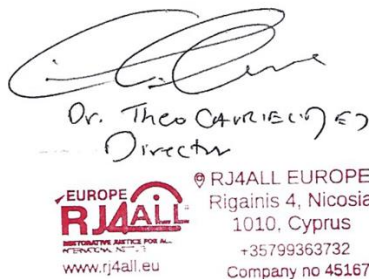 Dr. Theo GAVRIELIDES
Director
EUROPE
RJ4ALL
RESTORATIVE JUSTICE FOR ALL
INTERNATIONAL INSTITUTE
www.rj4all.eu
RJ4ALL EUROPE
Rigainis 4, Nicosia
1010, Cyprus
+35799363732
Company no 45167